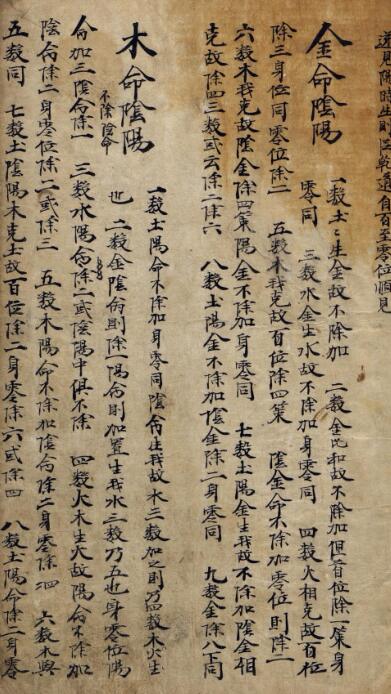 遇見除時坐則從乾邊自百至零位順見
金命陰陽
一数土土生金故不除加 二数金比和故不除加但百位除一策身
零同 三数水金生水故不除加身零同 四数火相克故百位
除三身位同零位除二 五数木我克故百位除四策 陰金命不除加零位則除一
六数木我克故陰金除四策陽金不除加身零同 七数土陽金生我故不除加陰金相
克故除四三数或云除二除六 八数土陽金不除加陰金除二身零同 九数金除八下同
木命陰陽
不除陰命
一数土陽命不除加身零同陰命生我故水三数加之則乃四数木火生
也 二数金陰命則除陽命則加置生我水三数乃五也身零位陽
命加三陰命除一 三数水陽命除二或陰陽中俱不除 四数火木生火故陽命不除加
陰命除二身零位除二或除三 五数木陽命不除加陰命除二身零除四 六数木與
五数同 七数土陰陽木克土故百位除二身零除六或除四 八数土陽命除二身零